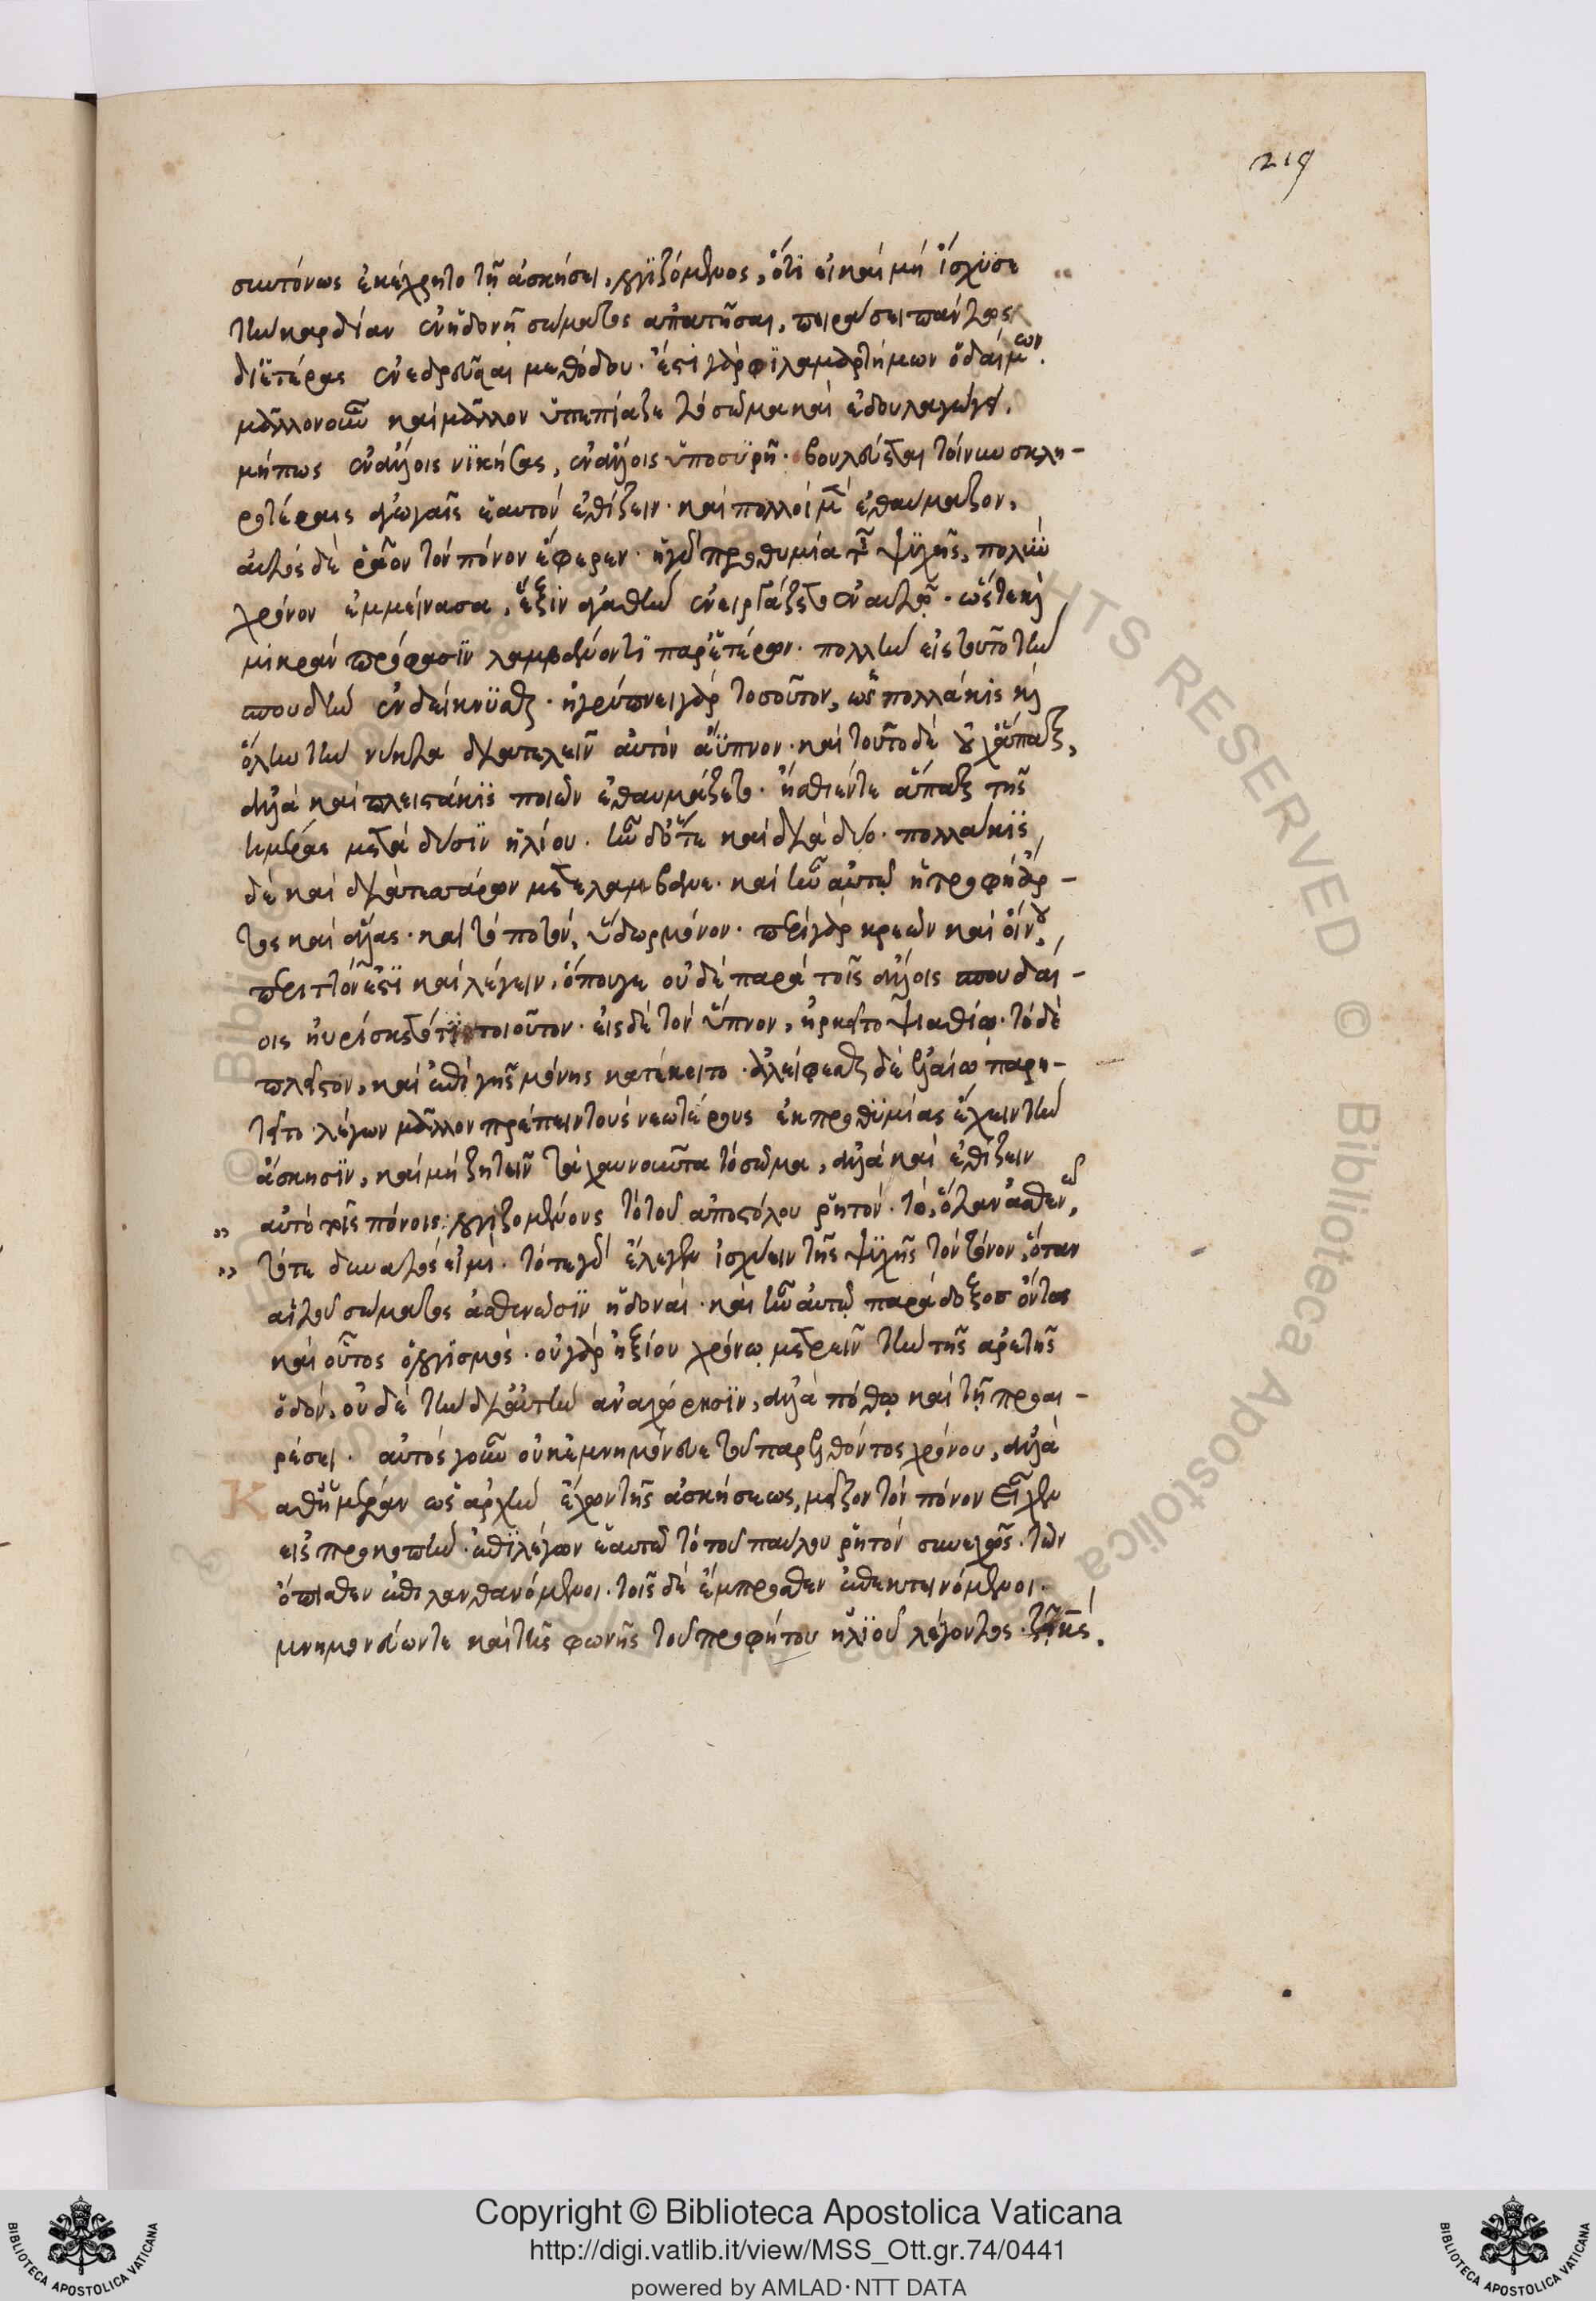 219
συντόνως ἐκέχρητο τῇ ἀσκήσει, λογϊζόμενος, ὅτϊ εἰ καὶ μὴ ἴσχϋσε
τὴν καρδίαν ἐν ἡδονῇ σώματος ἀπατῆσαι, πειράσει πάντως
δι' ἑτέρας ἐνεδρεῦσαι μεθόδου. ἔστι γὰρ φϊλαμαρτήμων ὁ δαίμων.
μᾶλλον οὖν καὶ μᾶλλον ὑπεπίαζε τὸ σῶμα καὶ ἐδουλαγώγει.
μήπως ἐν ἄλλοις νϊκήσας, ἐν ἄλλοις ὑποσϋρῇ. βουλεύεται τοίνυν σκλη-
ροτέραις ἀγωγαῖς ἑαυτὸν ἐθίζειν. καὶ πολλοὶ μὲν ἐθαύμαζον.
αὐτὸς δὲ ῥᾶον τὸν πόνον ἔφερεν. ἡ γὰρ προθυμία τῆς ψϋχῆς, πολὺν
χρόνον ἐμμείνασα, ἕξϊν ἀγαθὴν ἐνειργάζετο ἐν αὐτῷ. ὥστε καὶ
μικρὰν πρόφασϊν λαμβάνοντϊ παρ' ἑτέρων. πολλὴν εἰς τοῦτο τὴν
σπουδὴν ἐνδείκνϋσθαι. ἠγρύπνει γὰρ τοσοῦτον, ὡς πολλάκις καὶ
ὅλην τὴν νύκτα διατελεῖν αὐτὸν ἄϋπνον. καὶ τοῦτο δὲ οὐχ ἅπαξ,
ἀλλὰ καὶ πλειστάκϊς ποιῶν ἐθαυμάζετο. ἤσθιέν τε ἅπαξ τῆς
ἡμέρας μετὰ δύσϊν ἡλίου. ἦν δ' ὅτε καὶ διὰ δύο. πολλάκϊς
δὲ καὶ διὰ τεσσάρων μετελάμβανε. καὶ ἦν αὐτῷ ἡ τροφὴ ἄρ-
τος καὶ ἅλας. καὶ τὸ ποτὸν, ὕδωρ μόνον. περὶ γὰρ κρεῶν καὶ οἴνου,
περιττόν ἐστϊ καὶ λέγειν. ὅπουγε οὐδὲ παρὰ τοῖς ἄλλοις σπουδαί-
οις ηὑρίσκετό τϊ τοιοῦτον. εἰς δὲ τὸν ὕπνον, ἠρκεῖτο ψιαθίῳ. τὸ δὲ
πλεῖστον, καὶ ἐπὶ γῆς μόνης κατέκειτο. ἀλείφεσθαι δὲ ἐλαίῳ παρῃ-
τεῖτο. λέγων μᾶλλον πρέπειν τοὺς νεωτέρους ἐκ προθϋμίας ἔχειν τὴν
ἄσκησϊν, καὶ μὴ ζητεῖν τὰ χαυνοῦντα τὸ σῶμα, ἀλλὰ καὶ ἐθίζειν
„ αὐτὸ τοῖς πόνοις: λογϊζομένους τὸ τοῦ ἀποστόλου ῥητόν. τὸ, ὅταν ἀσθενῶ,
„ τότε δυνατός εἰμι. τότε γὰρ ἔλεγεν ἰσχύειν τῆς ψϋχῆς τὸν τόνον, ὅταν
αἱ τοῦ σώματος ἀσθενῶσϊν ἡδοναί. καὶ ἦν αὐτῷ παράδοξος ὄντως
καὶ οὗτος ὁ λογϊσμός. οὐ γὰρ ἠξίου χρόνῳ μετρεῖν τὴν τῆς ἀρετῆς
ὁδὸν, οὐδὲ τὴν δι' αὐτὴν ἀναχώρησϊν, ἀλλὰ πόθῳ καὶ τῇ προαι-
ρέσει. αὐτὸς γοῦν οὐκ ἐμνημόνευε τοῦ παρελθόντος χρόνου, ἀλλὰ
Καθ' ἡμέραν ὡς ἀρχὴν ἔχων τῆς ἀσκήσεως, μείζον τὸν πόνον εἶχεν
εἰς προκοπήν. ἐπϊλέγων ἑαυτῷ τὸ τοῦ παύλου ῥητὸν συνεχῶς. τῶν
ὄπισθεν ἐπιλανθανόμενοι. τοῖς δὲ ἔμπροσθεν ἐπεκτεινόμενοι.
μνημονεύων τε καὶ τῆς φωνῆς τοῦ προφήτου ἠλϊοῦ λέγοντος. ζῇ κς.
Copyright © Biblioteca Apostolica Vaticana
http://digi.vatlib.it/view/MSS_Ott.gr.74/0441
powered by AMLAD·NTT DATA